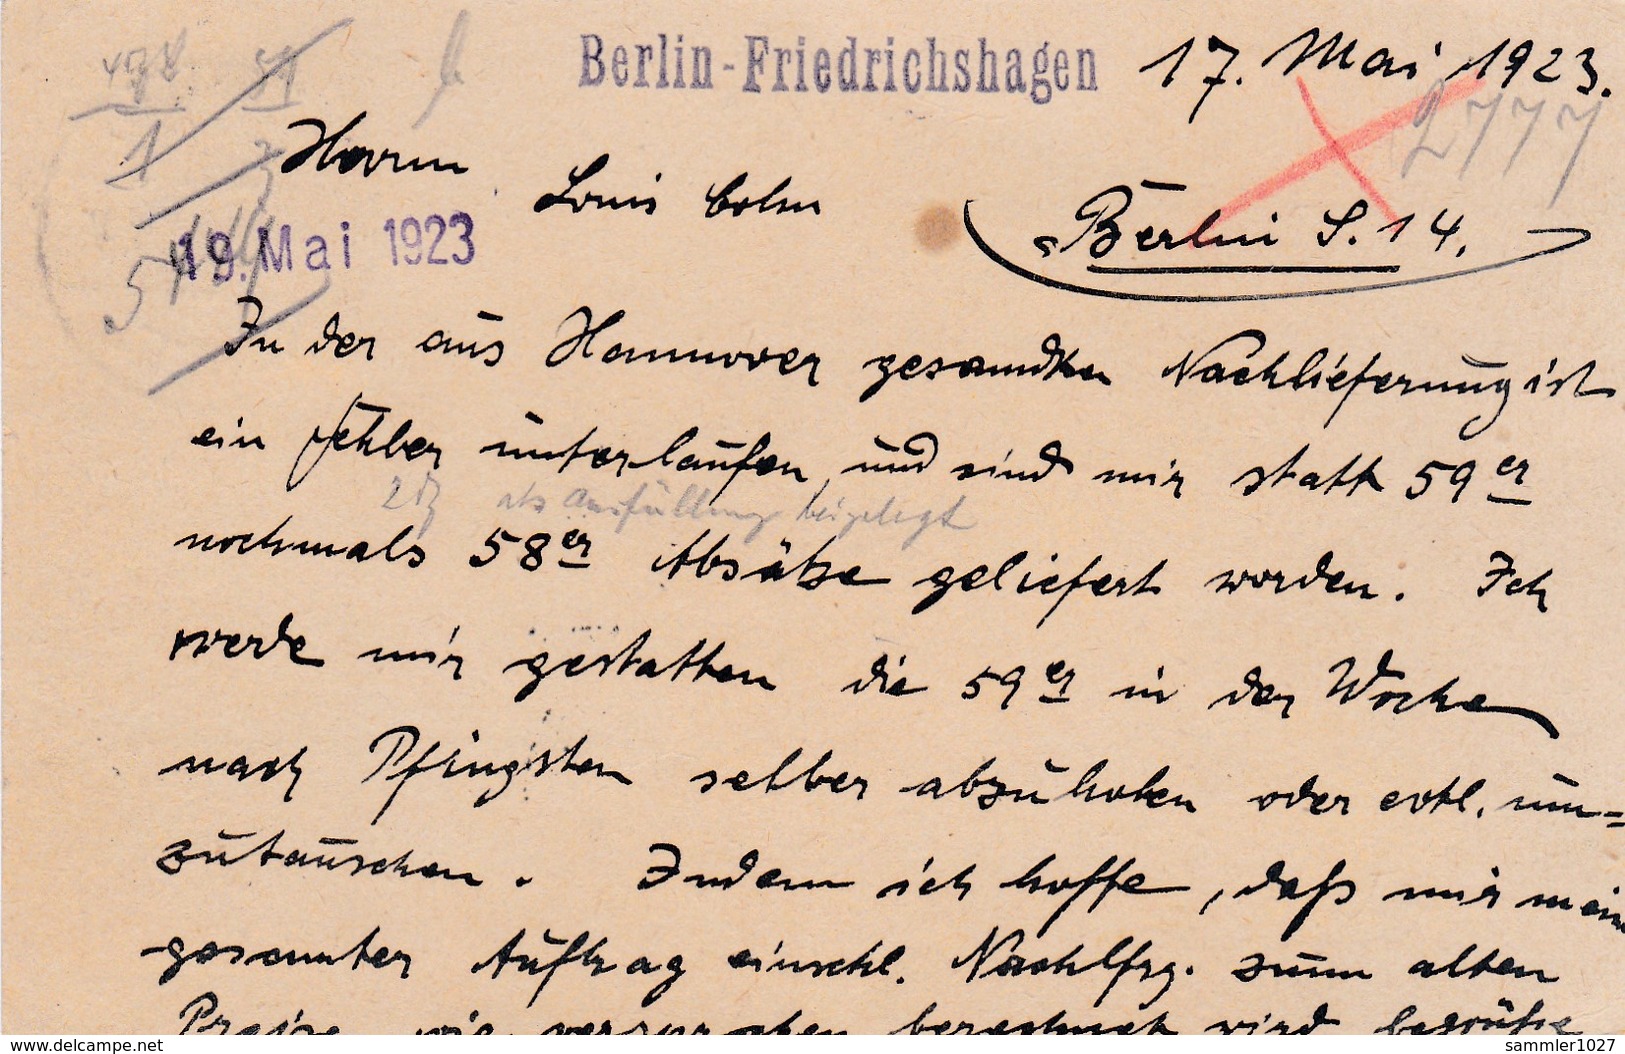 Berlin-Friedrichshagen 17. Mai 1923.
2777
Herrn
Louis Cohn
Berlin S. 14.
19. Mai 1923
In der aus Hannover gesandten Nachlieferung ist
ein Fehler unterlaufen, und sind mir statt 59er
als Ausfüllung beigelegt
nochmals 58er Absätze geliefert worden. Ich
werde mir gestatten die 59er in der Woche
nach Pfingsten selber abzuholen oder evtl. um=
zutauschen. Indem ich hoffe, daß mir mein
gesamter Auftrag einschl. Nachlfrg. zum alten
Preise wie versprochen berechnet wird begrüße
delcampe.net
sammler1027